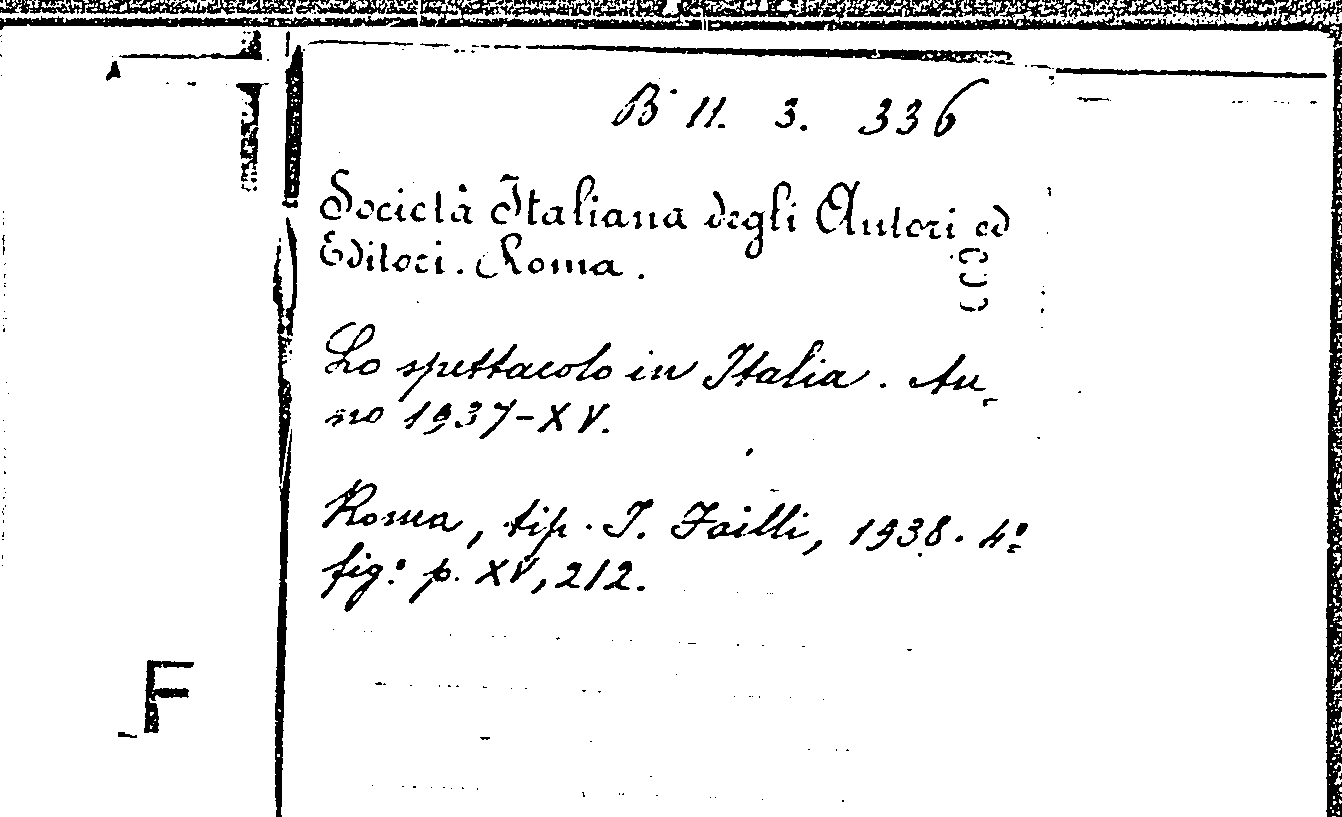 B. 11. 3. 336
Società Italiana degli Autori ed
Editori. Roma.
Lo spettacolo in Italia. An-
no 1937-XV.
Roma, tip. I. Failli, 1938. 4º
figº p. XV, 212.
F